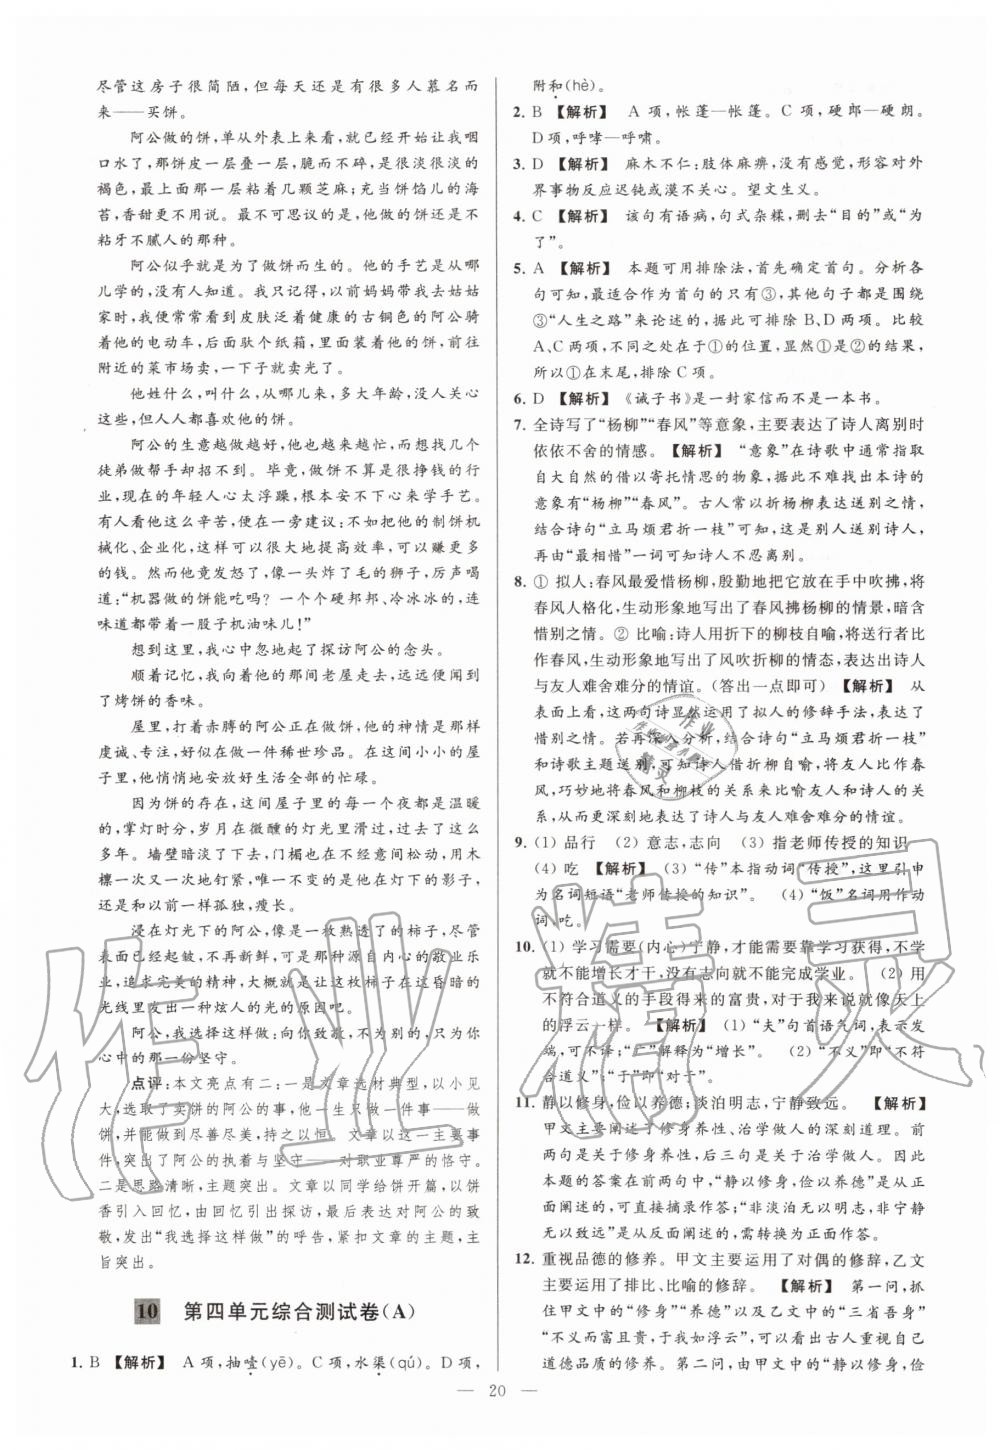 尽管这房子很简陋,但每天还是有很多人慕名而
来——买饼。
阿公做的饼,单从外表上来看,就已经开始让我咽
口水了,那饼皮一层叠一层,脆而不碎,是很淡很淡的
褐色,最上面的那一层粘着几颗芝麻;充当饼馅儿的海
苔,香甜更不用说。最不可思议的是,他做的饼是不
粘牙不腻人的那种。
阿公似乎就是为了做饼而生的。他的手艺是从哪
儿学的,没有人知道。我只记得,以前妈妈带我去姑姑
家时,我便常常看到皮肤泛着健康的古铜色的阿公骑
着他的电动车,后面驮个纸箱,里面装着他的饼,前往
附近的菜市场卖,一下子就卖光了。
他姓什么,叫什么,从哪儿来,多大年龄,没人关心
这些,但人人都喜欢他的饼。
阿公的生意越做越好,他也越来越忙,而想找个
徒弟做帮手却招不到。毕竟,做饼不算是很挣钱的行
业,现在的年轻人心太浮躁,根本安不下心来学手艺。
有人看他这么辛苦,便在一旁建议:不如把他的制饼机
械化、企业化,这样可以很大地提高效率,可以赚更多
的钱。然而他竟发怒了,像一头炸了毛的狮子,厉声喝
道:“机器做的饼能吃吗?一个个硬邦邦、冷冰冰的,连
味道都带着一股子机油味儿!”
想到这里,我心中忽地起了探访阿公的念头。
顺着记忆,我向着他的那间老屋走去,一下子闻到
了烤饼的香味。
屋里,打着赤膊的阿公正在做饼,他的神情是那样
虔诚、专注,好似在做一件稀世珍品。在这间小小的屋
子里,他悄悄地安放好生活全部的忙碌。
因为饼的存在,这间屋子里的每一个夜都是温暖
的,掌灯时分,岁月在微醺的灯光里显得这么近又这么
多年。墙壁暗淡了下去,门楣也在不经意间松动,用木
檩一次又一次地钉紧,唯一不变的是他在灯下的影子,
还和以前一样孤独,瘦长。
浸在灯光下的阿公,像是一枚熟透了的柿子,尽管
表面已经起皱,不再新鲜,但他那发自内心的敬业乐
业,追求完美的精神,让我觉得这枚柿子在这昏暗的
光线里发出一种炫人的光的原因吧。
阿公,我选择这样做:向你致敬,不为别的,只为你
心中的那一份坚守。
点评:本文亮点有二:一是文章选材典型,以小见
大,选取了卖饼的阿公的事,他十年如一日专注——做
饼,并做到尽善尽美,持之以恒。文章以这一主要事
件,突出了阿公的执着与坚守——对职业尊严的恪守。
二是思路清晰,主题突出。文章以同学给饼开篇,以饼
香引入回忆,由回忆引出探访,最后表达对阿公的致
敬,发出“我选择这样做”的呼告,紧扣文章的主题,主
旨突出。
10 第四单元综合测试卷(A)
1. B 【解析】 A项,抽噎(yē)。C项,水渠(qú)。D项,
附和(hè)。
2. B 【解析】 A项,帐蓬—帐篷。C项,硬郎—硬朗。
D项,呼哮—呼啸。
3. D 【解析】 麻木不仁:肢体麻痹,没有感觉,形容对外
界事物反应迟钝或漠不关心。望文生义。
4. C 【解析】 该句有语病,句式杂糅,删去“目的”或“为
了”。
5. A 【解析】 本题可用排除法,首先确定首句。分析各
句可知,最适合作为首句的只有③,其他句子都是围绕
③“人生之路”来论述的,据此可排除B、D两项。比较
A、C两项,不同之处在于①的位置,显然①是②的结果,
所以①在末尾,排除C项。
6. D 【解析】《诫子书》是一封家信而不是一本书。
7. 全诗写了“杨柳”“春风”等意象,主要表达了诗人离别时
依依不舍的情感。【解析】 “意象”在诗歌中通常指取
自大自然的借以寄托情思的物象,据此不难找出本诗的
意象有“杨柳”“春风”。古人常以折杨柳表达送别之情,
结合诗句“立马烦君折一枝”可知,这是别人送别诗人,
再由“最相惜”一词可知诗人不忍离别。
8. ① 拟人:春风最爱惜杨柳,殷勤地把它放在手中吹拂,将
春风人格化,生动形象地写出了春风拂杨柳的情景,暗含
惜别之情。② 比喻:诗人用折下的柳枝自喻,将送行者比
作春风,生动形象地写出了风吹折柳的情态,表达出诗人
与友人难舍难分的情谊。(答出一点即可)【解析】 从
表面上看,这两句诗显然运用了拟人的修辞手法,表达了
惜别之情。若再深入分析,结合诗句“立马烦君折一枝”
和诗歌主题送别,可知诗人借折柳自喻,将友人比作春
风,巧妙地将春风和柳枝的关系来比喻友人和诗人的关
系,从而更深刻地表达了诗人与友人难舍难分的情谊。
9. (1) 品行 (2) 意志,志向 (3) 指老师传授的知识
(4) 吃 【解析】 (3) “传”本指动词“传授”,这里引申
为名词短语“老师传授的知识”。 (4) “饭”名词用作动
词,吃。
10. (1) 学习需要(内心)宁静,才能需要靠学习获得,不学
就不能增长才干,没有志向就不能完成学业。 (2) 用
不符合道义的手段得来的富贵,对于我来说就像天上
的浮云一样。 【解析】 (1) “夫”句首语气词,表示发
端,可不译;“广”解释为“增长”。 (2) “不义”即“不符
合道义”;“于”即“对于”。
11. 静以修身,俭以养德;淡泊明志,宁静致远。 【解析】
甲文主要阐述了修身养性、治学做人的深刻道理。前
两句是关于修身养性,后三句是关于治学做人。因此
本题的答案在前两句中,直接概述,“静以修身,俭以养德”是从
正面阐述的,可以直接摘录作答;“非淡泊无以明志,非宁静
无以致远”是从反面阐述的,需转换为正面作答。
12. 重视品德的修养。甲文主要运用了对偶的修辞,乙文
主要运用了排比、比喻的修辞。 【解析】 第一问,抓
住甲文中的“修身”“养德”以及乙文中的“三省吾身”
“不义而富且贵,于我如浮云”,可看出古人重视自己
道德品质的修养。第二问,由甲文中的“静以修身,俭
20